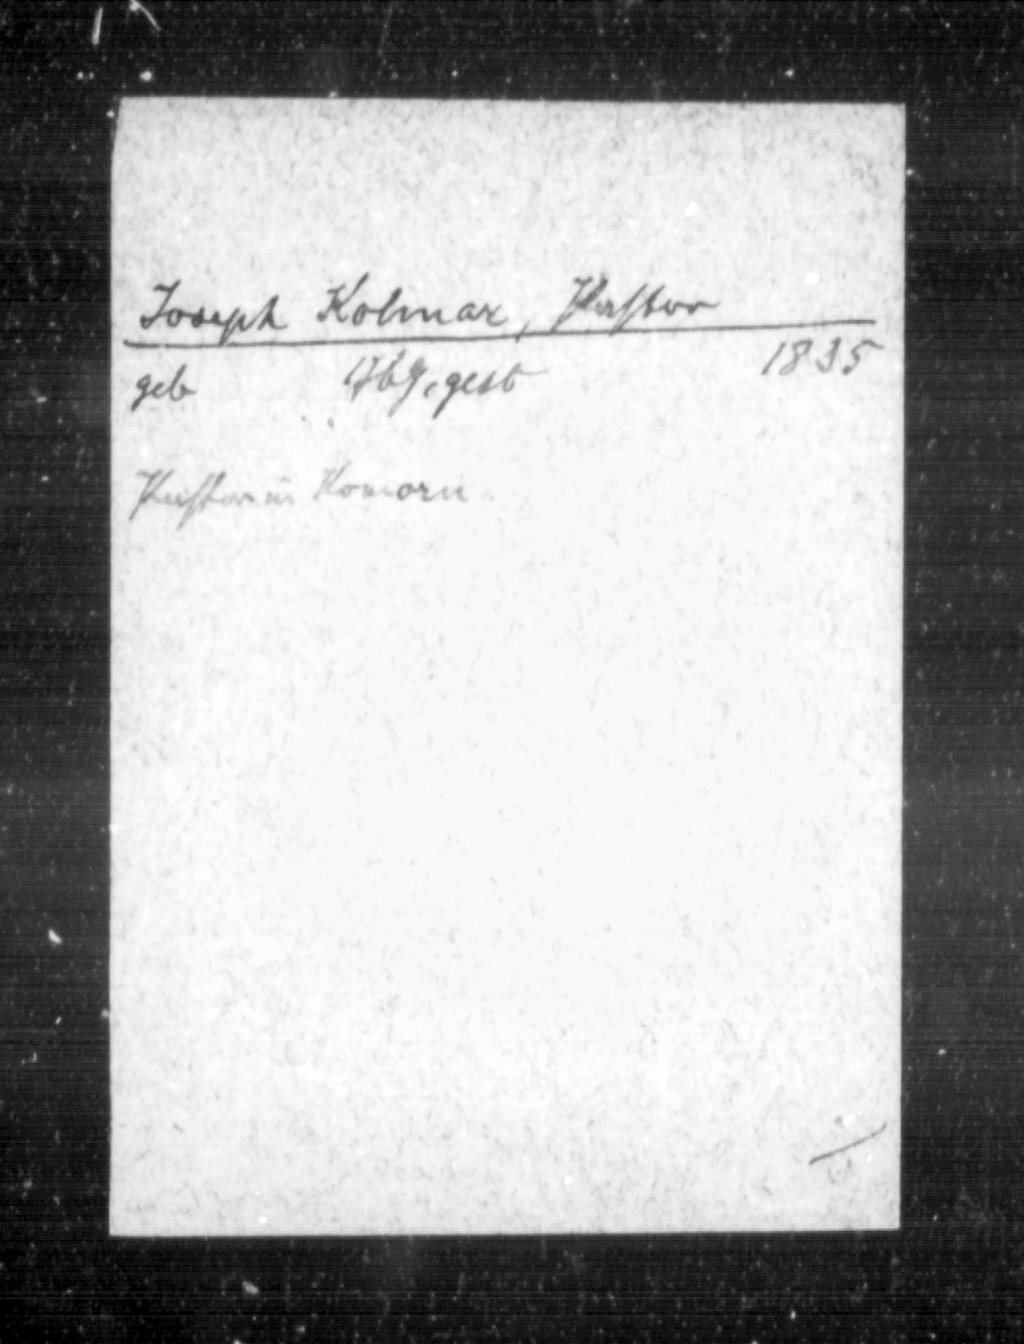 Joseph Kolmar, Pastor
geb 1769, gest 1835
Pastor in Komorn